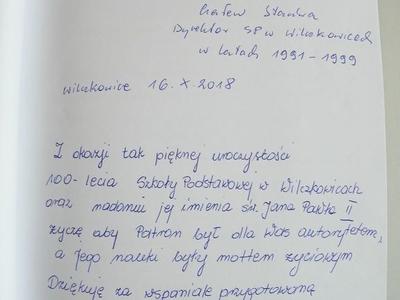 Dyrektor SP w Wilczkowicach
w latach 1991-1999
Wilczkowice 16.X.2018
Z okazji tak pięknej uroczystości
100-lecia Szkoły Podstawowej w Wilczkowicach
oraz nadaniu jej imienia św. Jana Pawła II
życzę aby Patron był dla Was autorytetem,
a jego nauki były mottem życiowym
Dziękuję za wspaniale przygotowaną